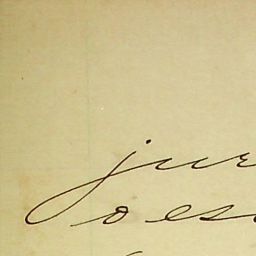 jur
oes